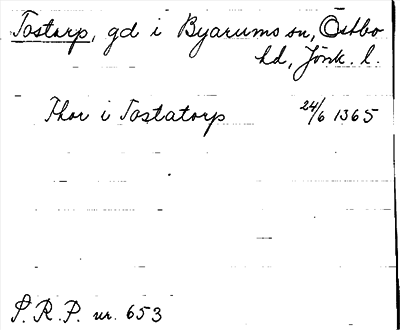 Tostarp, gd i Byarums sn, Östbo
hd, Jönk. l.
Thor i Tostatorp 24/6 1365
P.R.P. nr. 653